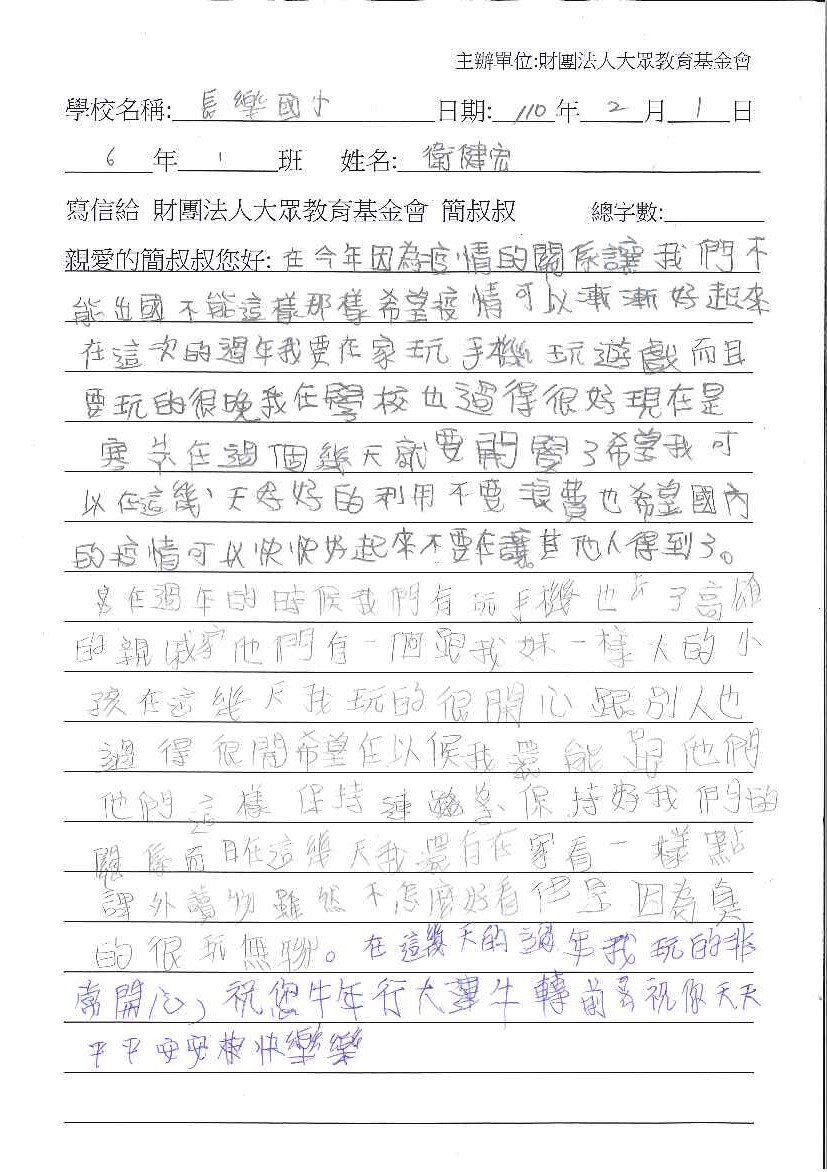 主辦單位:財團法人大眾教育基金會
學校名稱: 長樂國小 日期: 110 年 2 月 1 日
6 年 1 班 姓名: 衛健宏
寫信給 財團法人大眾教育基金會 簡叔叔 總字數:
親愛的簡叔叔您好: 在今年因為疫情的關係讓我們不
能出國不能這樣那樣希望疫情可以漸漸好起來
在這次的過年我要在家玩手機玩遊戲而且
要玩的很晚我在學校也過得很好現在是
寒 在過個幾天就要開學了希望我可
以在這幾天好好的利用不要浪費也希望國內
的疫情可以快快好起來不要在讓其他人得到了。
在過年的時候我們有玩手機也去了高雄
的親戚家他們有一個跟我妹一樣大的小
孩在這幾天我玩的很開心跟別人也
過得很開希望在以候我還能跟他們
他們這樣保持連 保持好我們的
關係而且在這幾天我還有在家看一樣點
課外讀物雖然不怎麼好看但是因為真
的很玩無聊。在這幾天的過年我玩的非
常開心,祝您牛年行大運牛轉前 祝你天天
平平安安 快樂樂